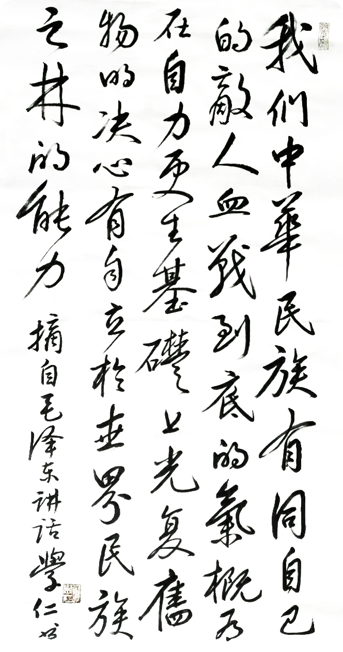 我们中華民族有同自己
的敵人血戰到底的氣概有
在自力更生基礎上光复舊
物的决心有自立於世界民族
之林的能力
摘自毛泽东讲话學仁书